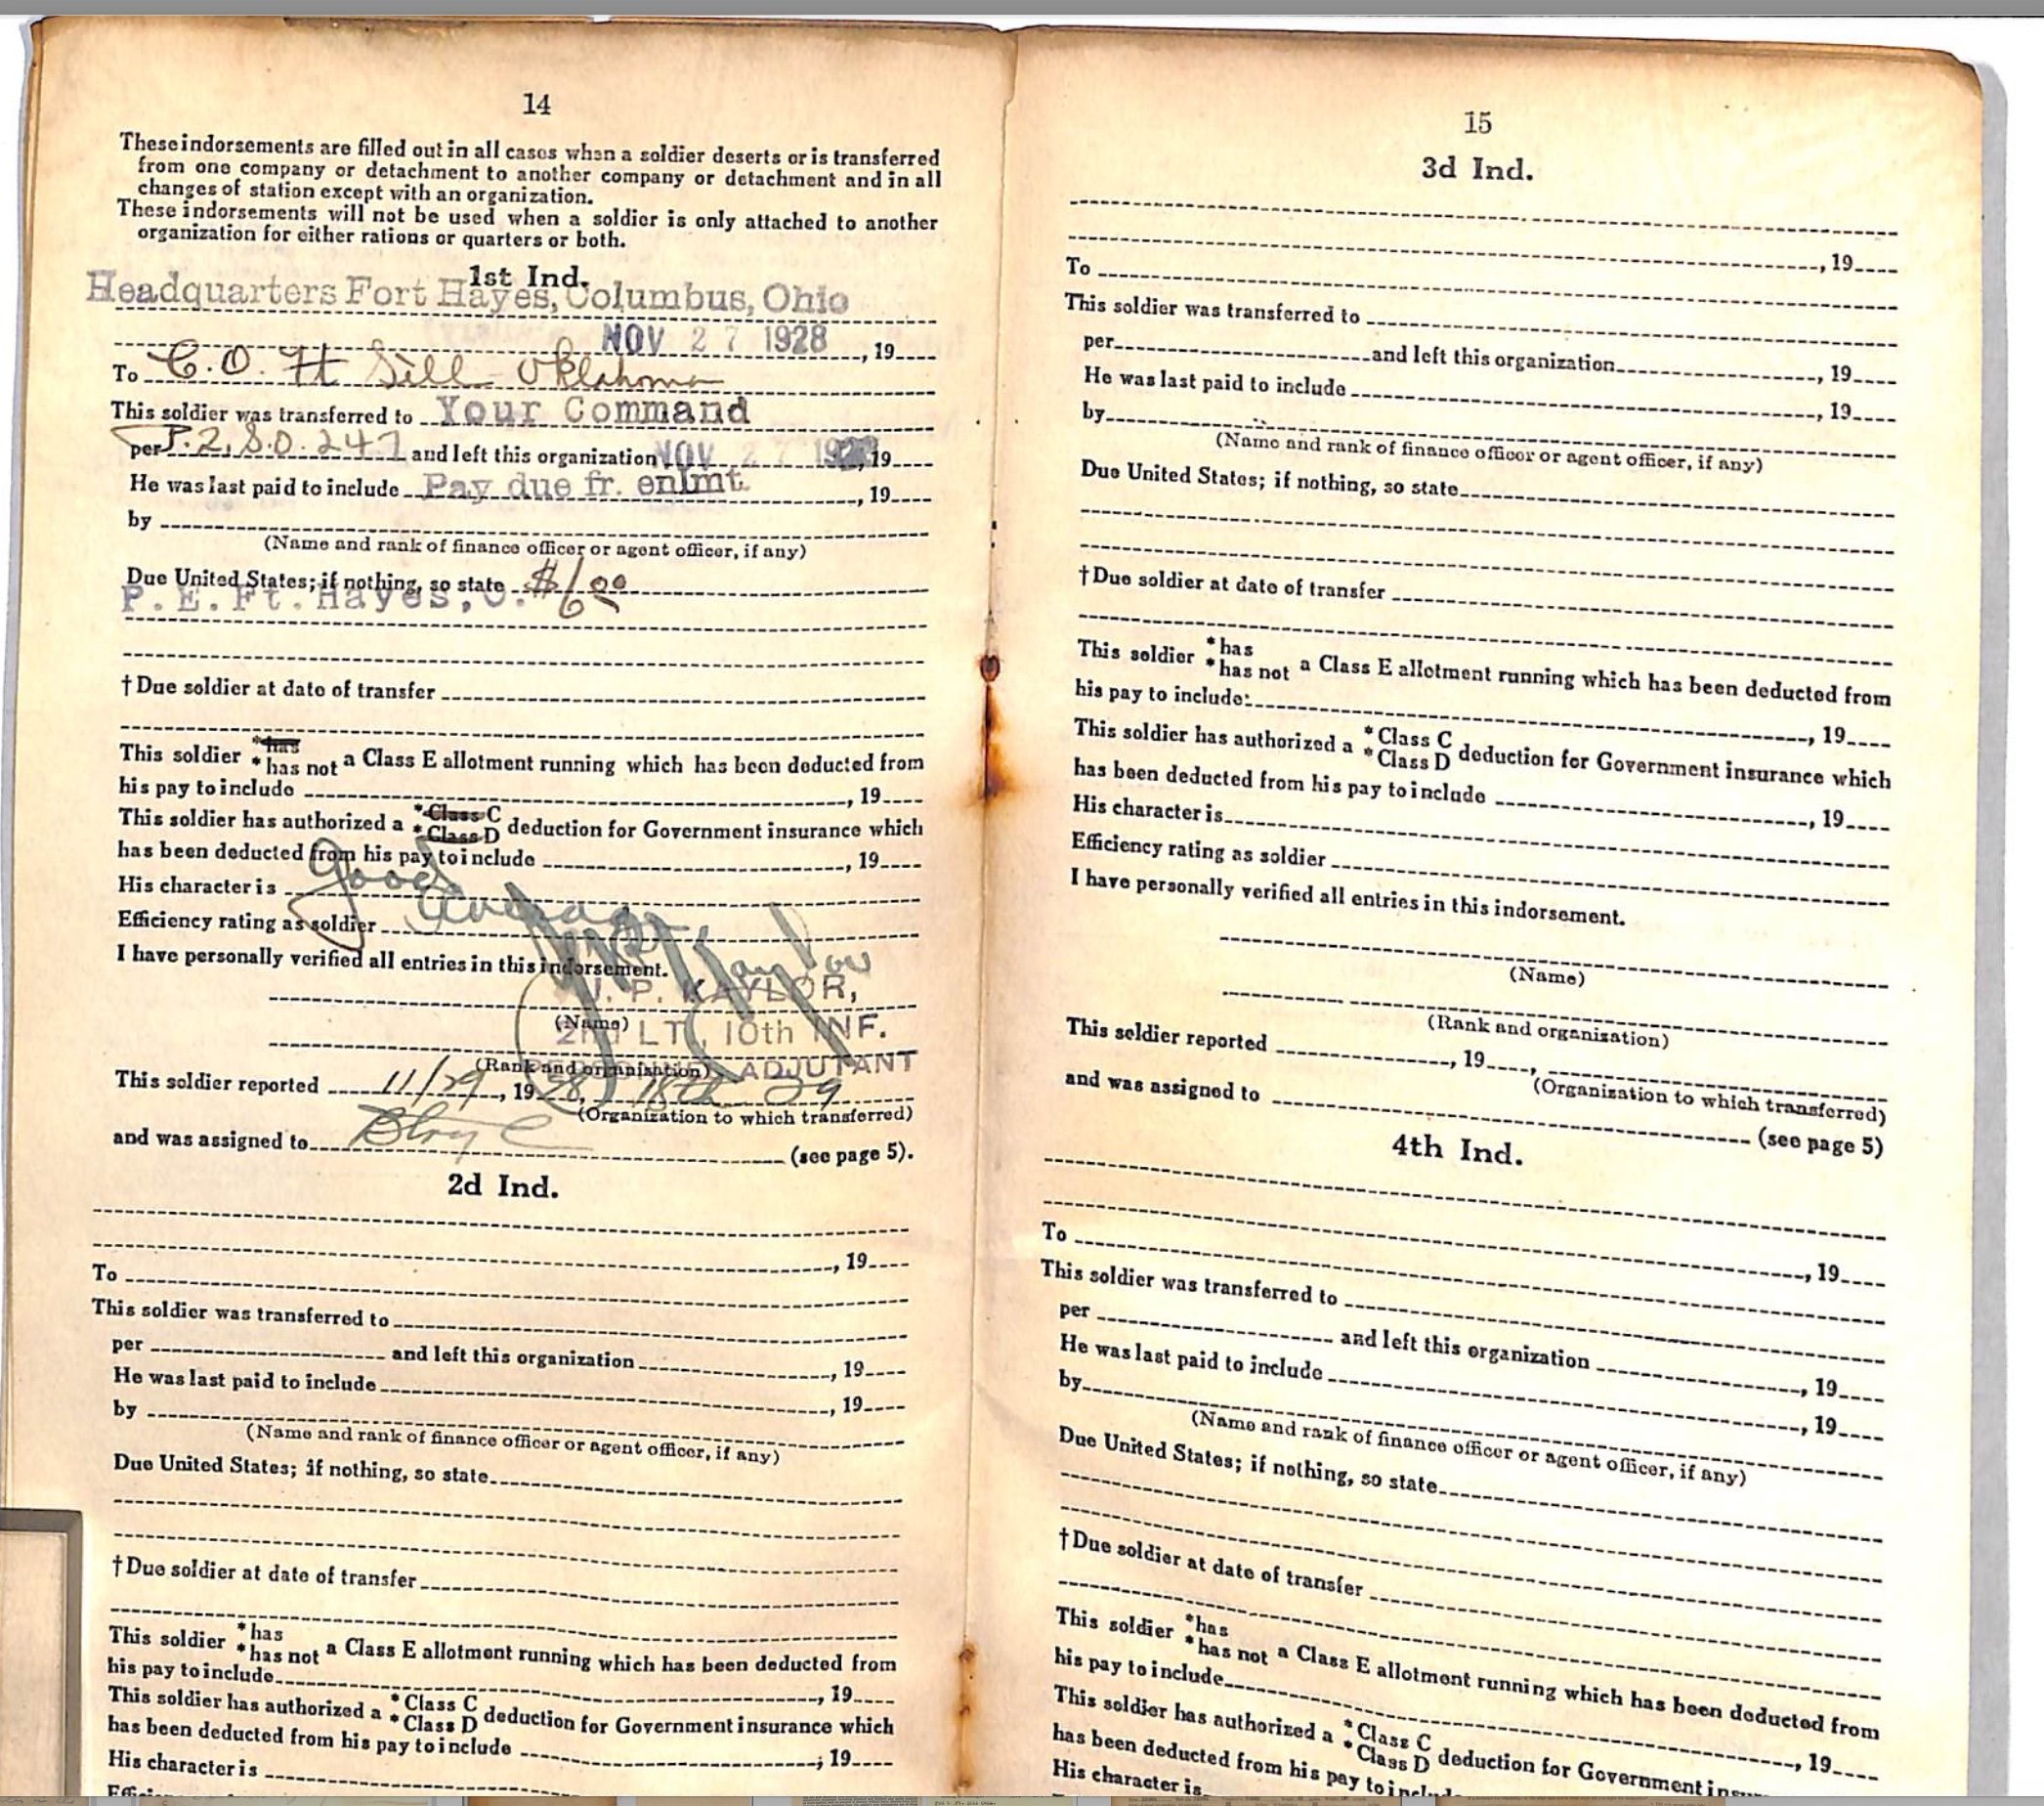 14
These indorsements are filled out in all cases when a soldier deserts or is transferred
from one company or detachment to another company or detachment and in all
changes of station except with an organization.
These indorsements will not be used when a soldier is only attached to another
organization for either rations or quarters or both.
1st Ind.
Headquarters Fort Hayes, Columbus, Ohio
NOV 27 1928, 19
To C.O. Ft Sill Oklahoma
This soldier was transferred to Your Command
per P. 2, S.O. 247 and left this organization NOV 27 1928, 19
He was last paid to include Pay due fr. enlmt., 19
by
(Name and rank of finance officer or agent officer, if any)
Due United States; if nothing, so state $6.00
P. E. Ft. Hayes, O.
†Due soldier at date of transfer
This soldier *has
*has not a Class E allotment running which has been deducted from
his pay to include, 19
This soldier has authorized a *Class C
*Class D deduction for Government insurance which
has been deducted from his pay to include, 19
His character is good
Efficiency rating as soldier average
I have personally verified all entries in this indorsement.
J. P. KAYLOR,
(Name)
2nd LT., 10th INF.
(Rank and organization) ADJUTANT
This soldier reported 11/29, 1928, 18th
(Organization to which transferred)
and was assigned to Btry C (see page 5).
2d Ind.
, 19
To
This soldier was transferred to
per and left this organization, 19
He was last paid to include, 19
by
(Name and rank of finance officer or agent officer, if any)
Due United States; if nothing, so state
†Due soldier at date of transfer
This soldier *has
*has not a Class E allotment running which has been deducted from
his pay to include, 19
This soldier has authorized a *Class C
*Class D deduction for Government insurance which
has been deducted from his pay to include; 19
His character is
15
3d Ind.
, 19
To
This soldier was transferred to
per and left this organization, 19
He was last paid to include, 19
by
(Name and rank of finance officer or agent officer, if any)
Due United States; if nothing, so state
†Due soldier at date of transfer
This soldier *has
*has not a Class E allotment running which has been deducted from
his pay to include:, 19
This soldier has authorized a *Class C
*Class D deduction for Government insurance which
has been deducted from his pay to include, 19
His character is
Efficiency rating as soldier
I have personally verified all entries in this indorsement.
(Name)
(Rank and organization)
This soldier reported, 19,
(Organization to which transferred)
and was assigned to (see page 5)
4th Ind.
, 19
To
This soldier was transferred to
per and left this organization, 19
He was last paid to include, 19
by
(Name and rank of finance officer or agent officer, if any)
Due United States; if nothing, so state
†Due soldier at date of transfer
This soldier *has
*has not a Class E allotment running which has been deducted from
his pay to include, 19
This soldier has authorized a *Class C
*Class D deduction for Government
has been deducted from his pay to
His character is